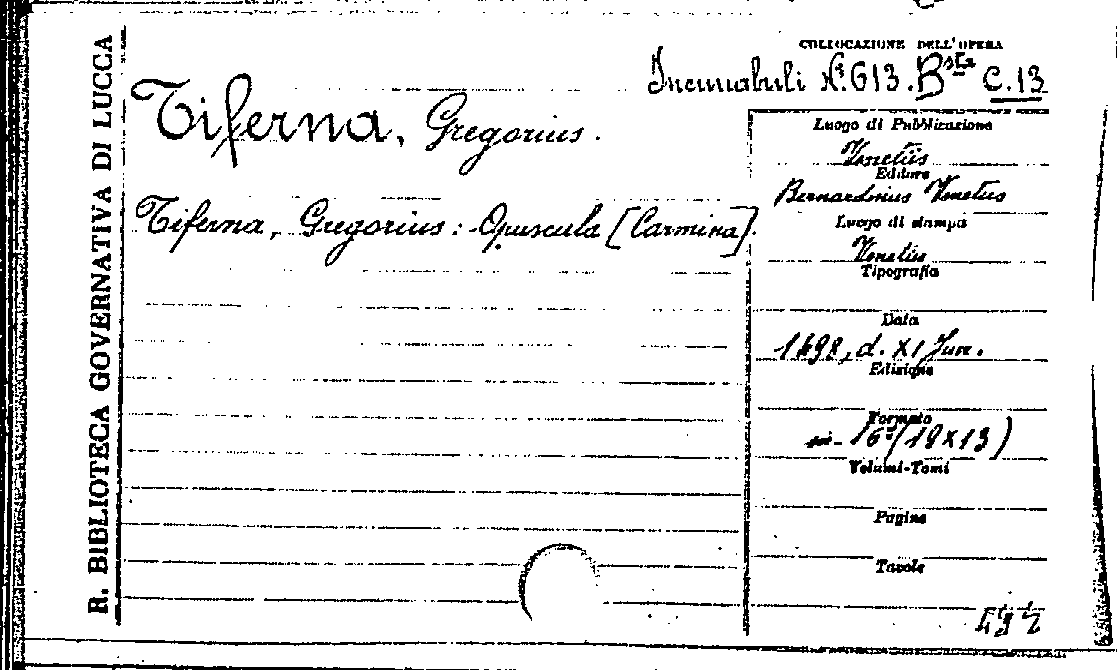 R. BIBLIOTECA GOVERNATIVA DI LUCCA
COLLOCAZIONE DELL'OPERA
Incunabuli N.º 613. Bsta C.13
Tiferna, Gregorius.
Tiferna, Gregorius: Opuscula [Carmina].
Luogo di Pubblicazione
Venetiis
Editore
Bernardinius Venetus
Luogo di stampa
Venetiis
Tipografia
Data
1498, d. XI Jun.
Edizione
Formato
in-16º (19×13)
Volumi-Tomi
Pagine
Tavole
492